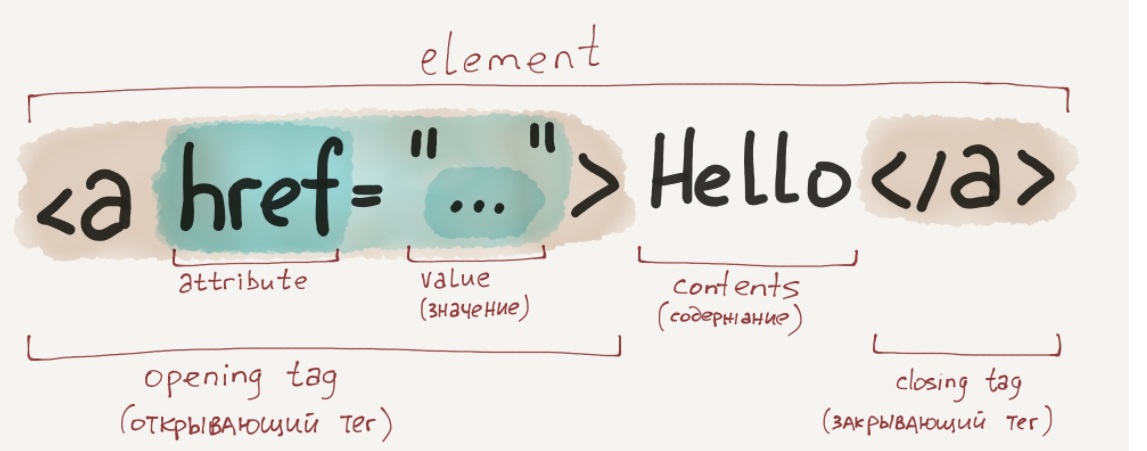 element
<a href="..."> Hello </a>
attribute
value
(значение)
contents
(содержание)
opening tag
(открывающий тег)
closing tag
(закрывающий тег)